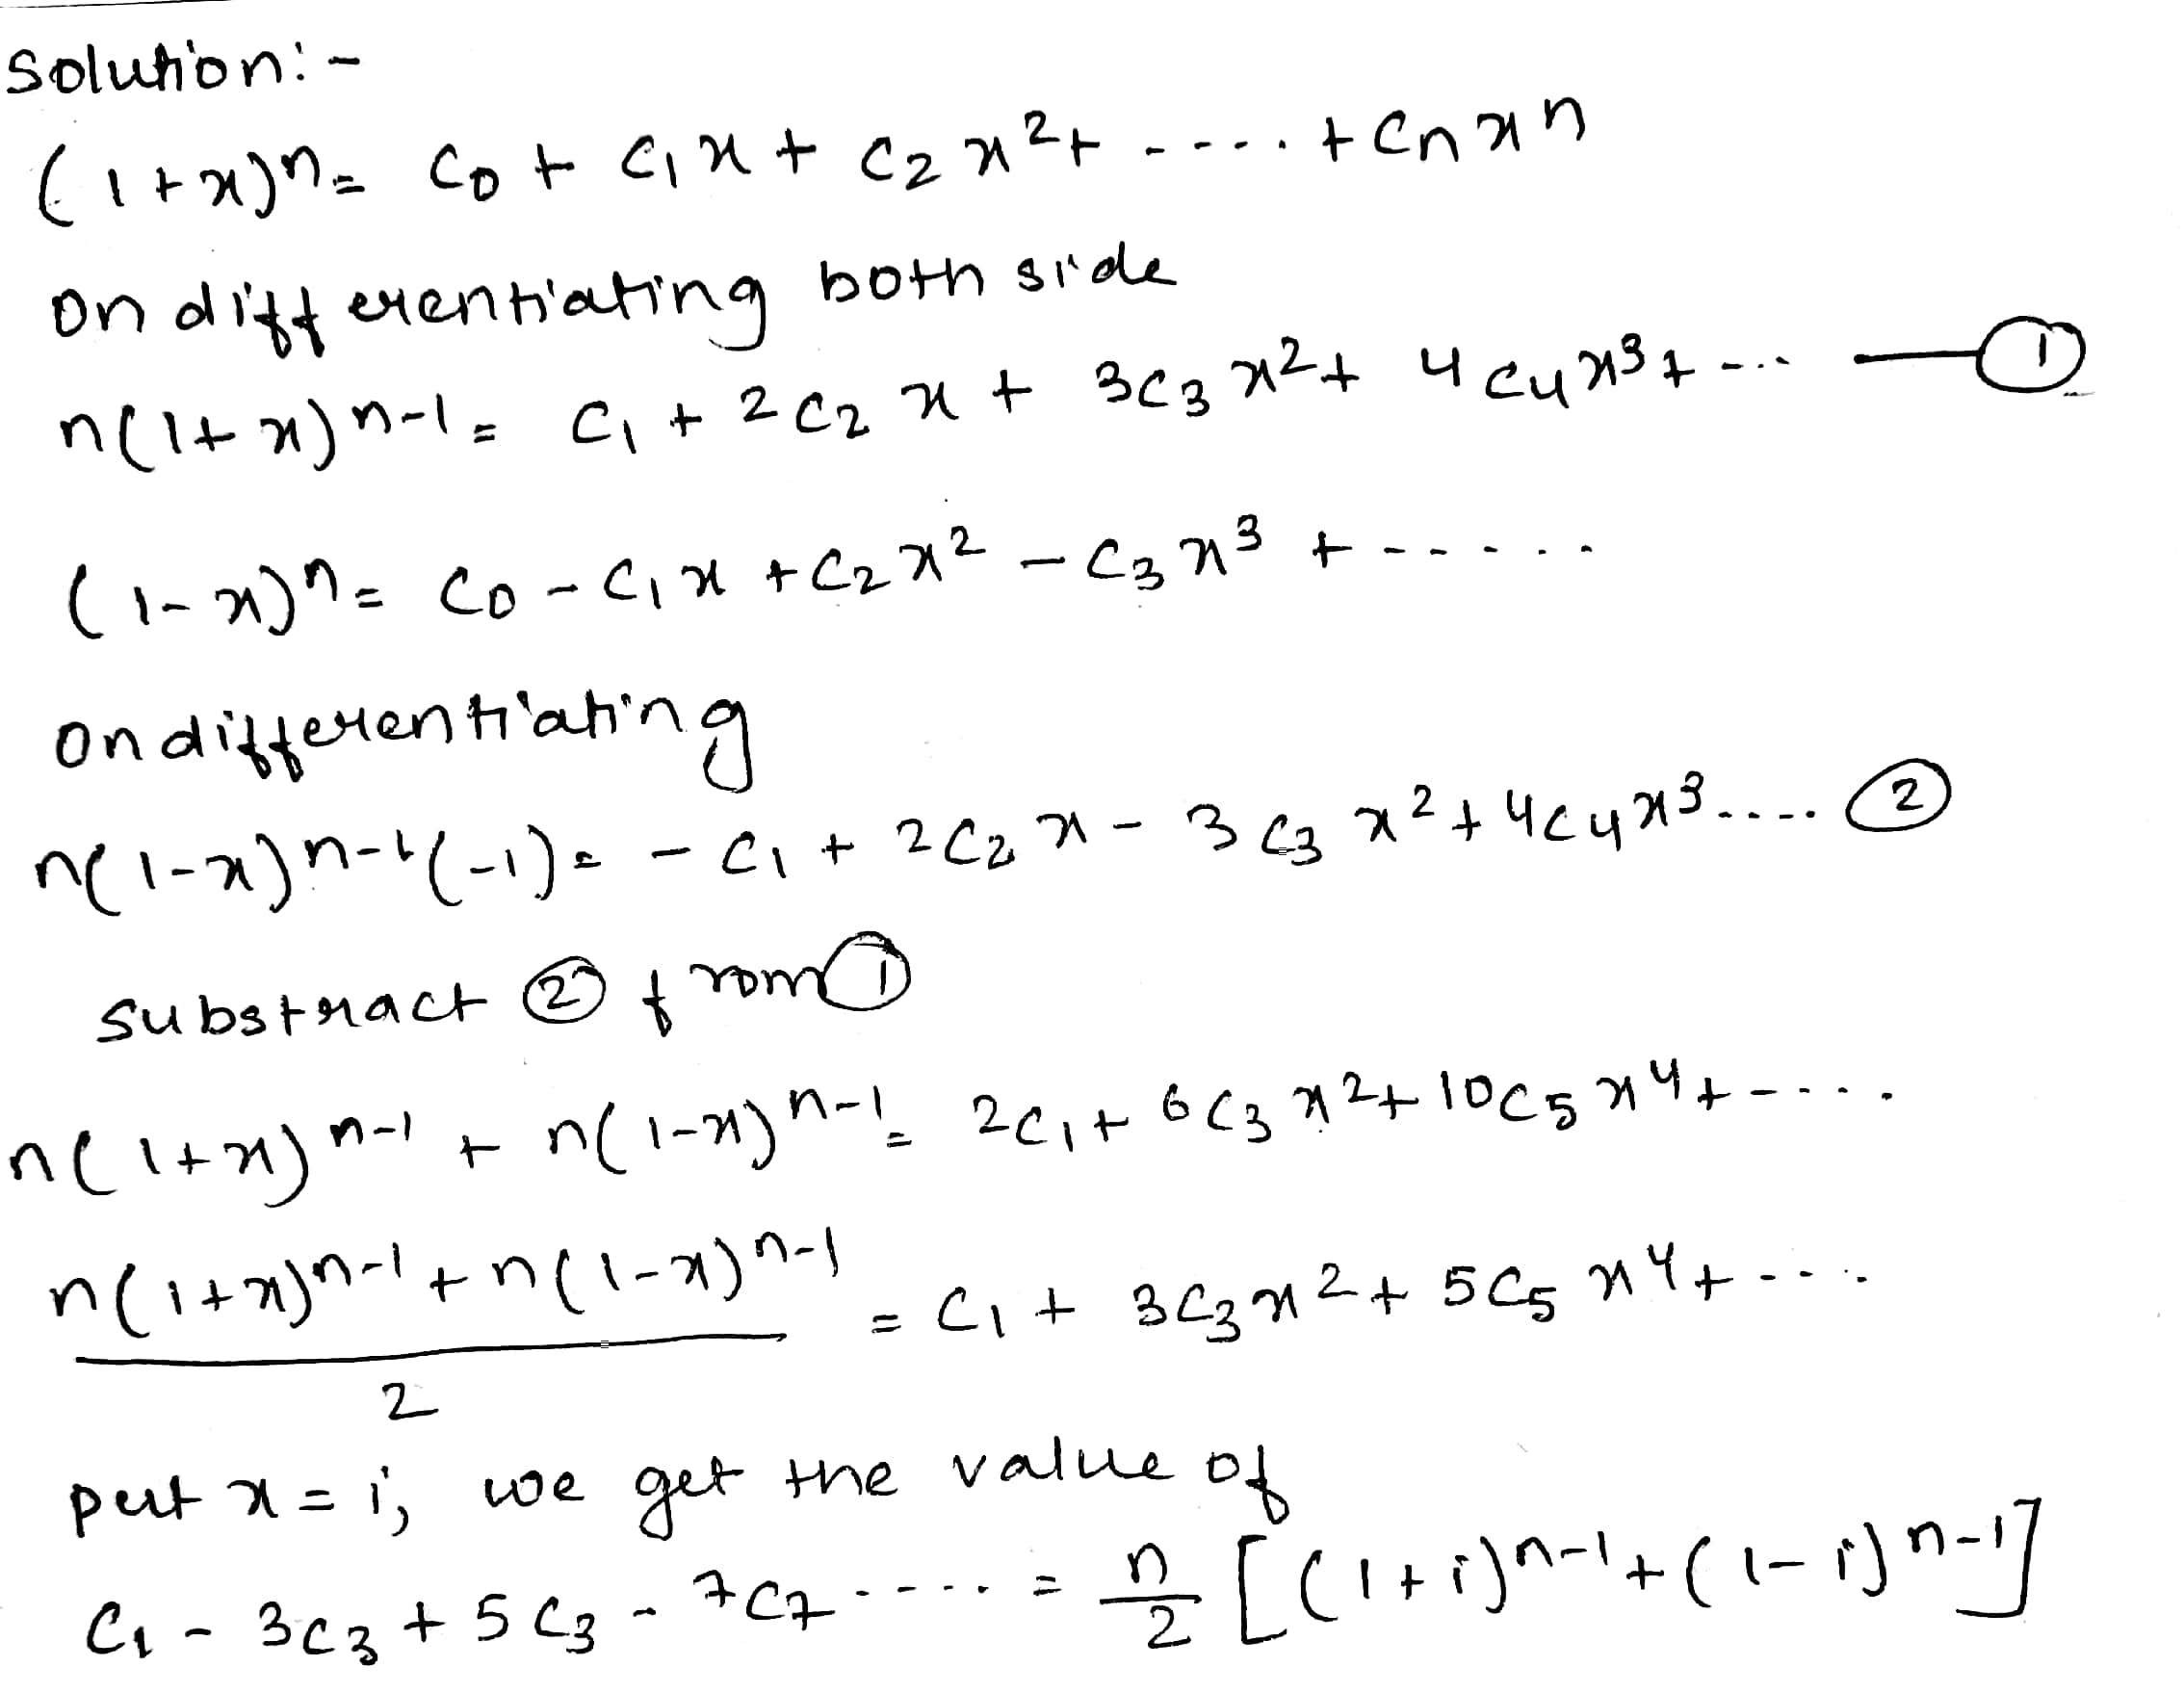 Solution:-
(1+x)^n = C0 + C1x + C2x^2 + ..... + Cnx^n
On differentiating both side
n(1+x)^n-1 = C1 + 2C2x + 3C3x^2 + 4C4x^3 + ... — ①
(1-x)^n = C0 - C1x + C2x^2 - C3x^3 + .....
On differentiating
n(1-x)^n-1(-1) = -C1 + 2C2x - 3C3x^2 + 4C4x^3 .... ②
substract ② from ①
n(1+x)^n-1 + n(1-x)^n-1 = 2C1 + 6C3x^2 + 10C5x^4 + ....
n(1+x)^n-1 + n(1-x)^n-1 / 2 = C1 + 3C3x^2 + 5C5x^4 + ....
put x = i, we get the value of
C1 - 3C3 + 5C3 - 7C7 ..... = n/2 [(1+i)^n-1 + (1-i)^n-1]